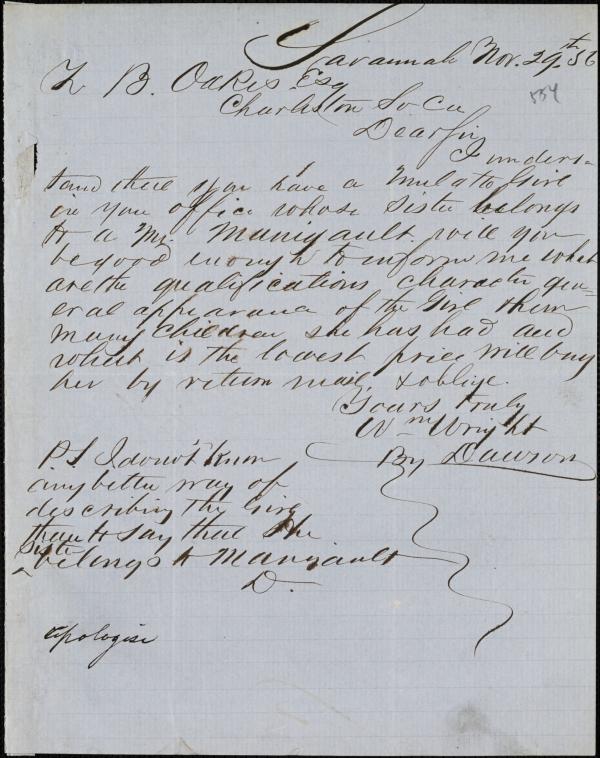 Savannah Nov. 29th 56
Z B. Oakes Esqr
554
Charleston So Ca
Dear Sir
I unders-
tand that you have a Mulatto Girl
in you office whose Sister belongs
to a Mr. Manigault. will you
be good enough to inform me what
are the qualifications, character gen-
eral appearance of the Girl & how
many Children she has had and
what is the lowest price will buy
her by return mail, & oblige.
Yours truly
Wm Wright
By Dawson
P.S I do not know
any better way of
describing the Girl
than to say that She
Sister
belongs to Manigault
D.
apologise